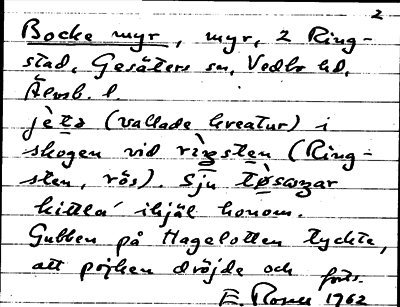 2
Bocke myr, myr, 2 Ring-
stad, Gesäters sn, Vedbo hd,
Älvsb. l
jèta (vallade kreatur) i
skogen vid rìŋsten (Ring-
sten, rös). Sju tøsaŋar
"kittla" ihjäl honom.
Gubben på Hagelotten tyckte,
att pojken dröjde och
forts.
E. 1962